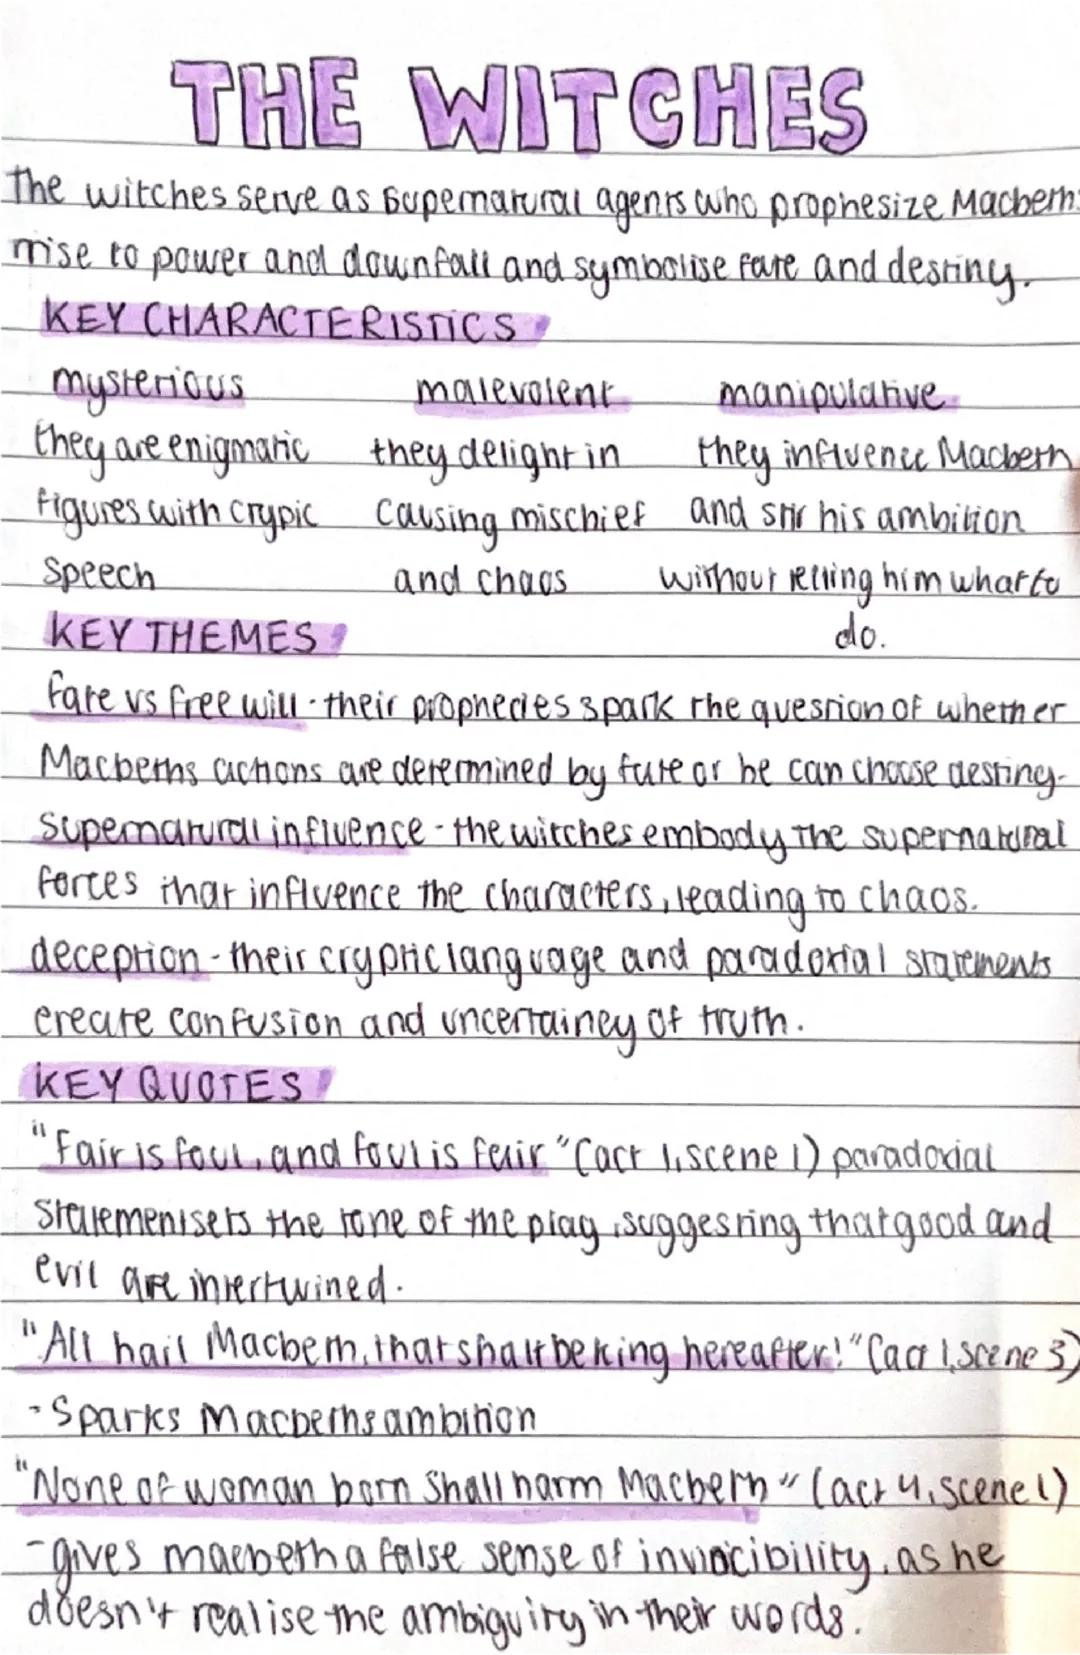 THE WITCHES
The witches serve as supernatural agents who prophesize Macbeths
rise to power and downfall and symbolise fate and destiny.
KEY CHARACTERISTICS
mysterious malevolent manipulative
they are enigmatic they delight in they influence Macbeth
figures with crypic causing mischief and stir his ambition
speech and chaos without telling him what to
do.
KEY THEMES
fate vs free will - their prophecies spark the question of whether
Macbeths actions are determined by fate or he can choose destiny.
supernatural influence - the witches embody the supernatural
forces that influence the characters, leading to chaos.
deception - their cryptic language and paradoxial statements
create confusion and uncertainey of truth.
KEY QUOTES
"Fair is foul, and foul is fair" (act 1, scene 1) paradoxial
statement sets the tone of the play, suggesting that good and
evil are intertwined.
"All hail Macbeth, that shalt be king hereafter!" (act 1, scene 3)
- Sparks Macbeths ambition
"None of woman born shall harm Macbeth" (act 4, scene 1)
- gives macbeth a false sense of invincibility, as he
doesn't realise the ambiguity in their words.